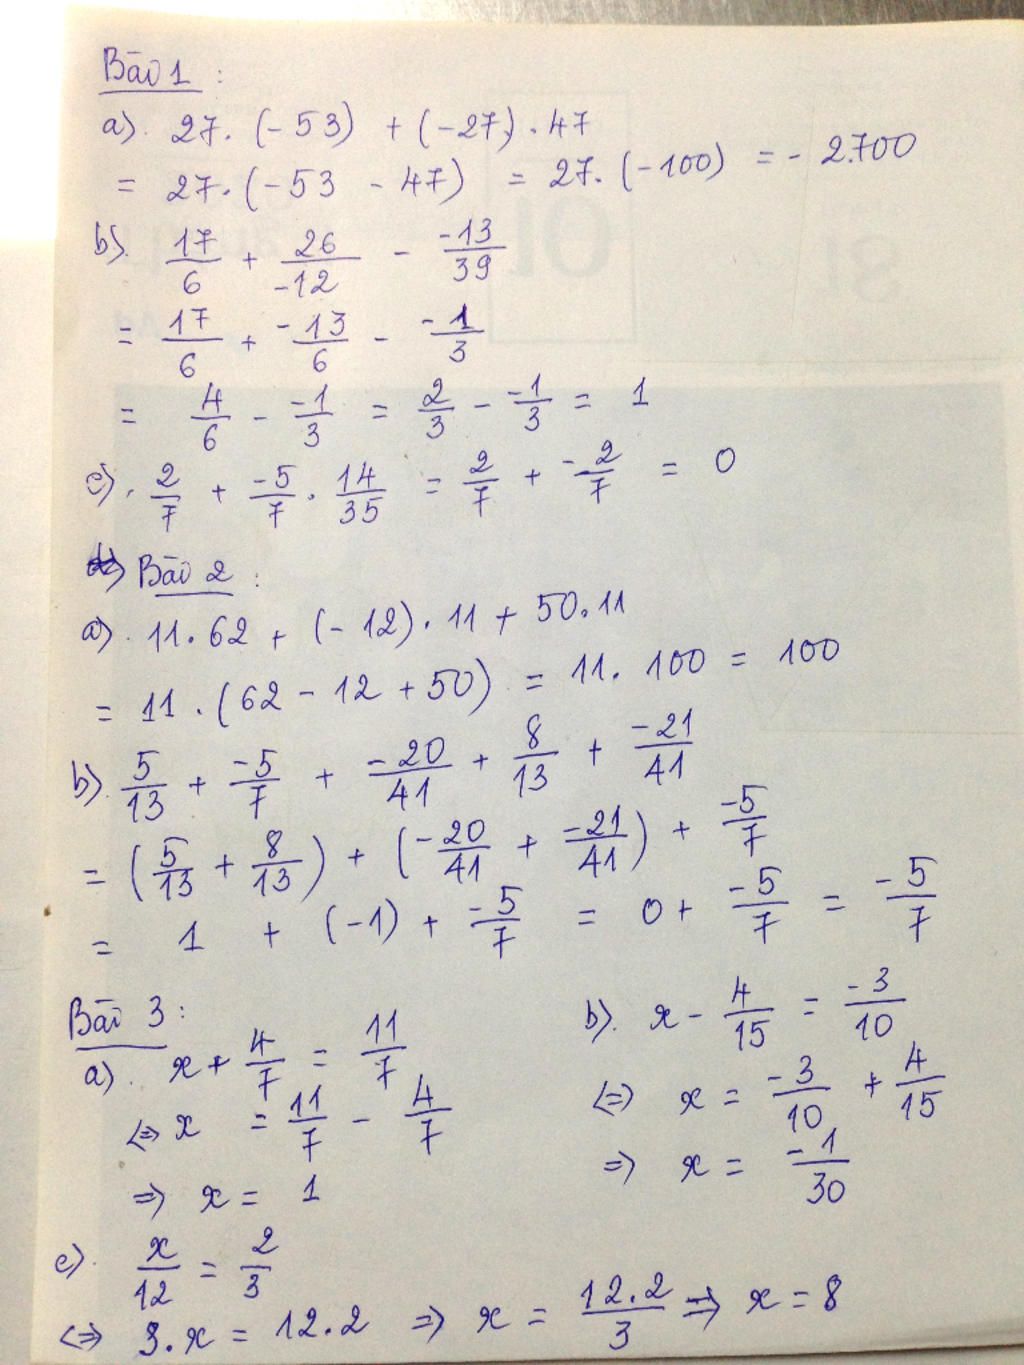 Bài 1 :
a). 27. (-53) + (-27) . 47
= 27. (-53 - 47) = 27. (-100) = - 2.700
b). 17/6 + 26/-12 - -13/39
= 17/6 + -13/6 - -1/3
= 4/6 - -1/3 = 2/3 - -1/3 = 1
c). 2/7 + -5/7 . 14/35 = 2/7 + -2/7 = 0
Bài 2 :
a). 11.62 + (-12). 11 + 50.11
= 11 . (62 - 12 + 50) = 11. 100 = 100
b). 5/13 + -5/7 + -20/41 + 8/13 + -21/41
= (5/13 + 8/13) + (-20/41 + -21/41) + -5/7
= 1 + (-1) + -5/7 = 0 + -5/7 = -5/7
Bài 3 :
a). x + 4/7 = 11/7
⇔ x = 11/7 - 4/7
⇒ x = 1
b). x - 4/15 = -3/10
⇔ x = -3/10 + 4/15
⇒ x = -1/30
c). x/12 = 2/3
⇔ 3.x = 12.2 ⇒ x = 12.2/3 ⇒ x = 8